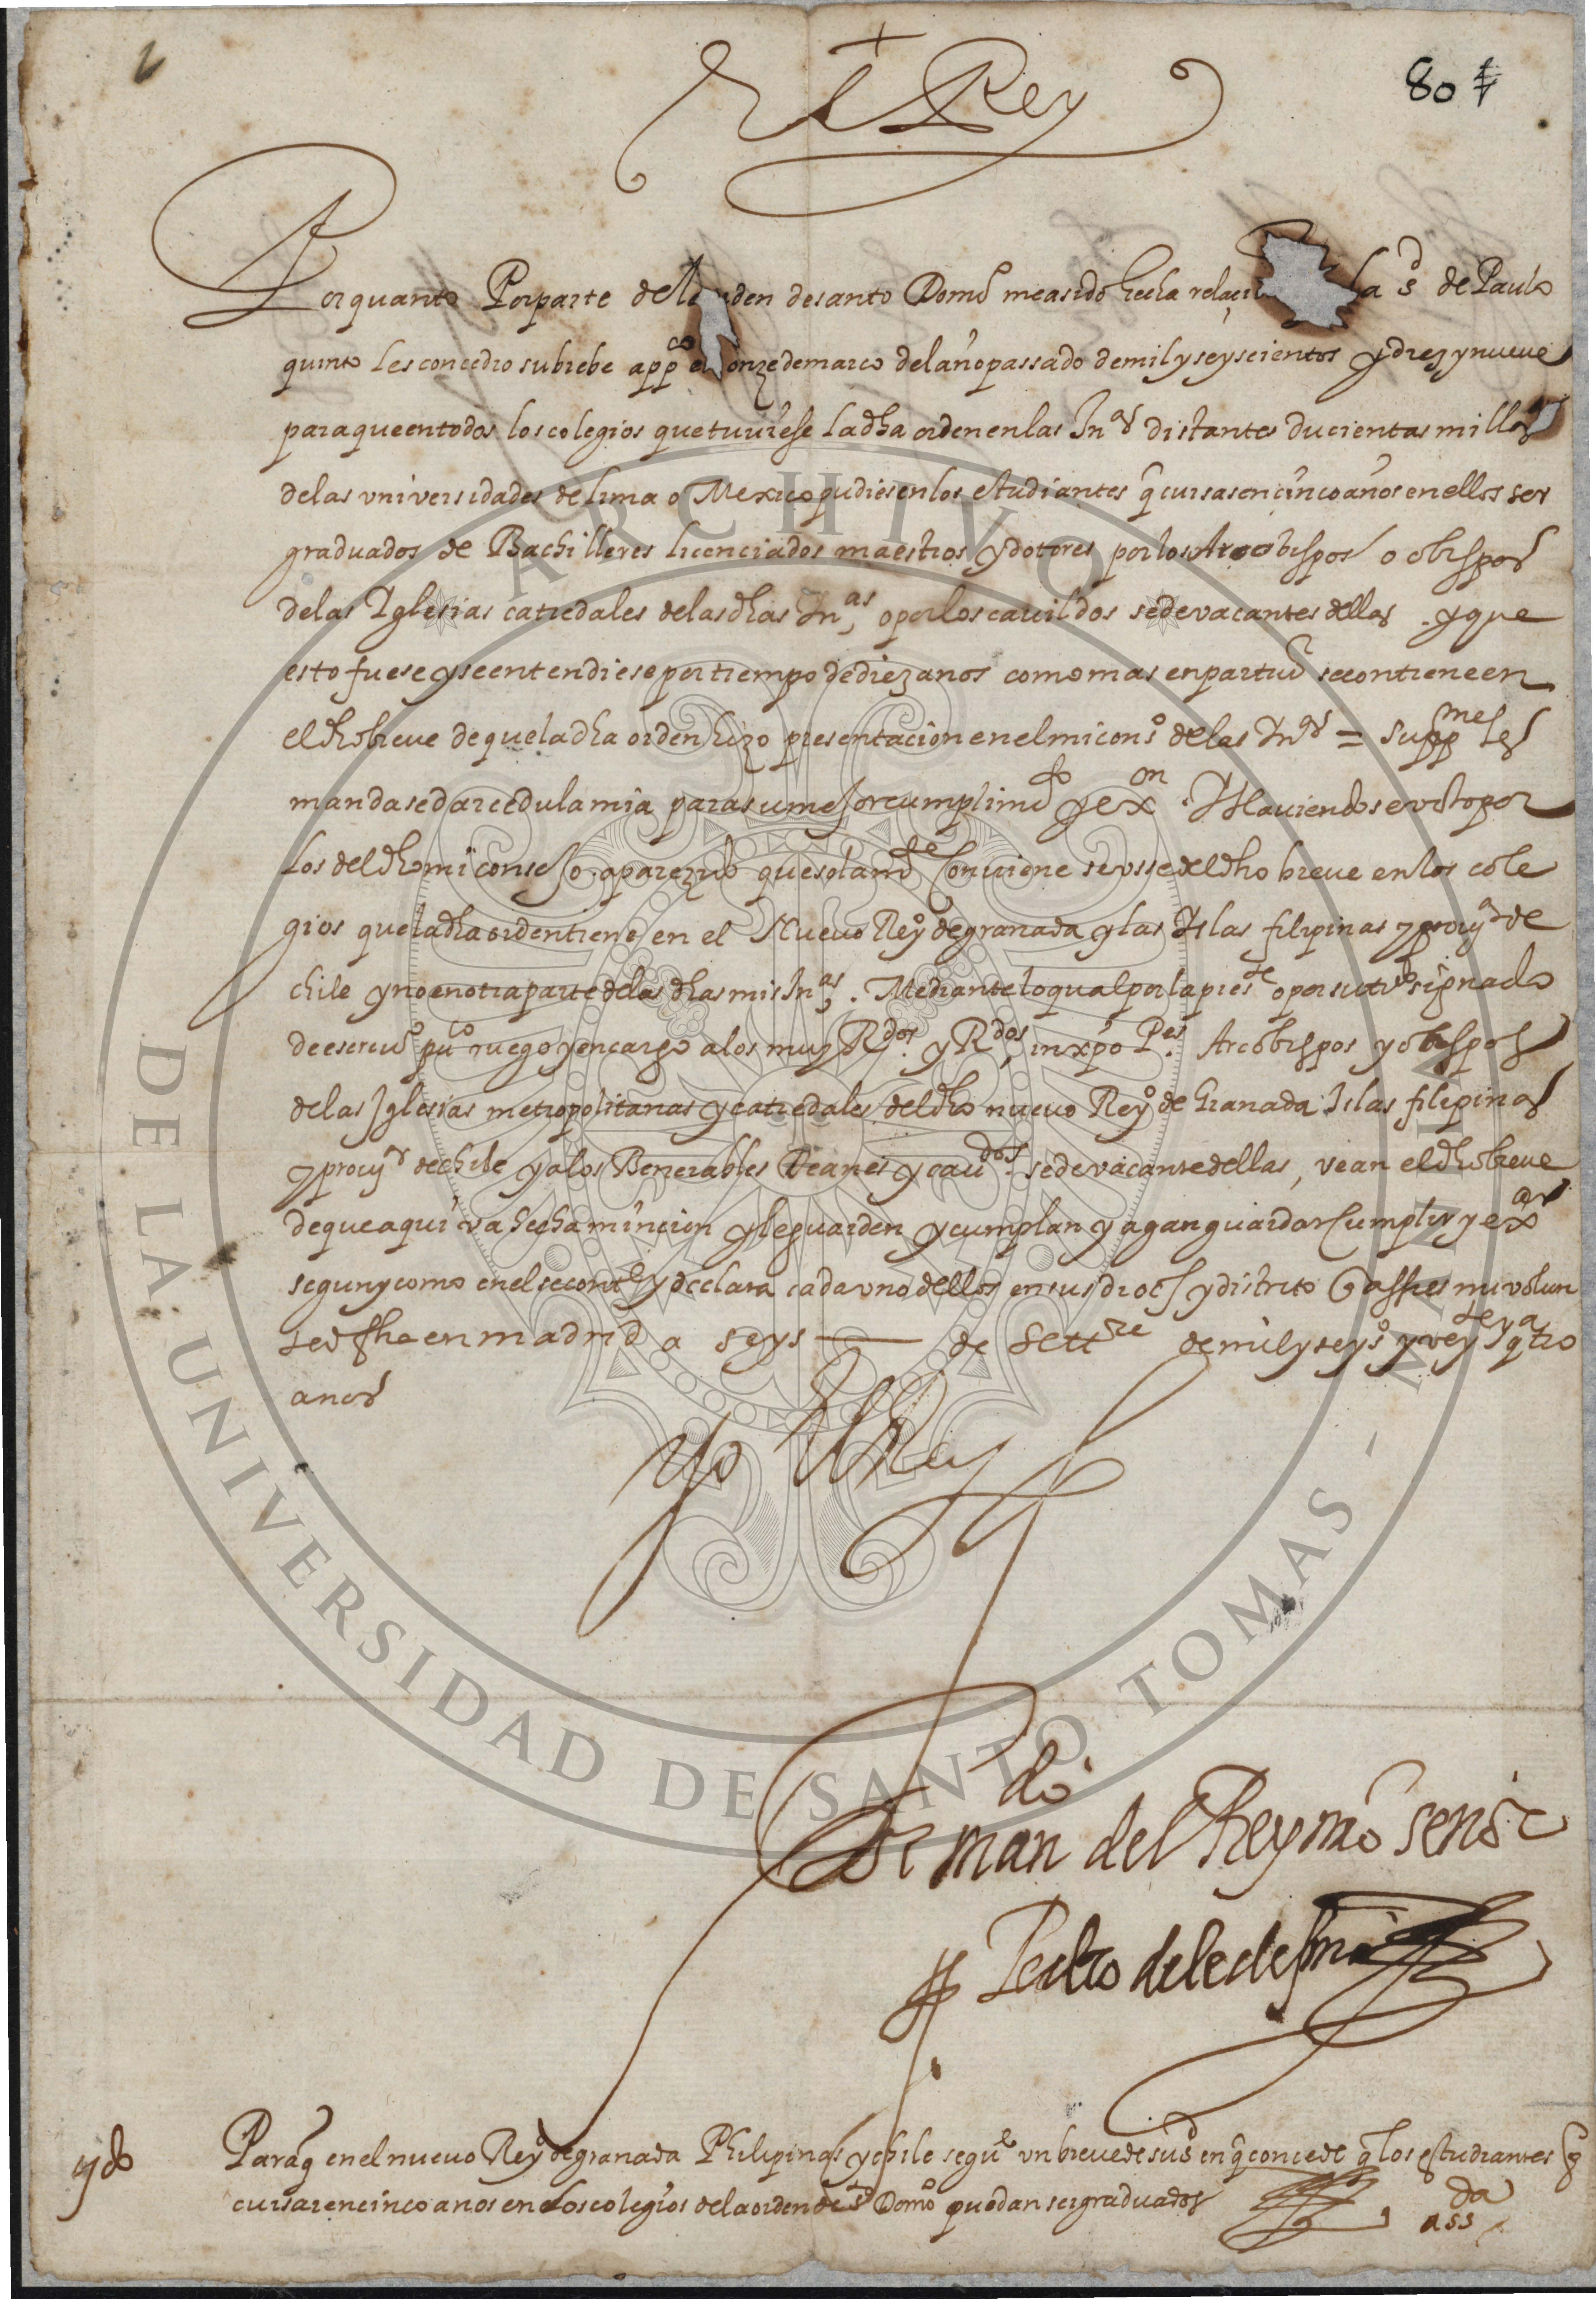 80
El Rey
Por quanto Por parte de la orden de santo Domº me a sido hecha relaci la sd de Paulo
quinto les concedio su brebe appco en onze de março del año passado de mil y seyscientos y diez y nueve
para que en todos los colegios que tuviese la dha orden en las Inas distantes ducientas millas
de las universidades de lima o Mexico pudiesen los estudiantes q cursasen cinco años en ellos ser
graduados de Bachilleres licenciados maestros y dotores por los Arcobispos o obispos
de las Iglesias catredales de las dhas Inas o por los cavildos sede vacantes dellas . y que
esto fuese y se entendiese por tiempo de diez anos como mas en particur se contiene en
el dho breve de que la dha orden hizo presentacion en el mi consº de las Inas = suppme les
mandase dar cedula mia para su mejor cumplimdo y exon . Y Haviendose visto por
los del dho mi consejo . a parezido que solamde conviene se usse del dho breve en los cole
gios que la dha orden tiene en el Nuevo Reyº de granada y las Islas filipinas y provia de
chile y no en otra parte de las dhas mis Inas . Mediante lo qual por la preste o por su trdo signado
de escrivº puco ruego y encargo a los muy Rdos . y Rdos in xpo Pes . Arcobispos y obispos
de las Iglesias metropolitanas y catredales del dho nuevo Reyº de Granada Islas filipinas
y provia de chile y a los Benerables Deanes y cavdos . sede vacante dellas , vean el dho breve
de que aqui va hecha mincion y le guarden y cumplan y agan guardar cumplir y exar
segun y como en el se conte y declara cada uno dellos en sus dioes y distrito q assi es mi volun
tad fha en madrid a seys de Settre de mil y seysº y veynte y quatro
anos
yo El Rey
Por mando del Rey nrº señor
Pedro de ledesma
Para q en el nuevo Reyº de granada Philipinas y chile segue un breve de su sd en q concede q los estudiantes q
cursaren cinco anos en los colegios de la orden de sto Domº puedan ser graduados
da
ass